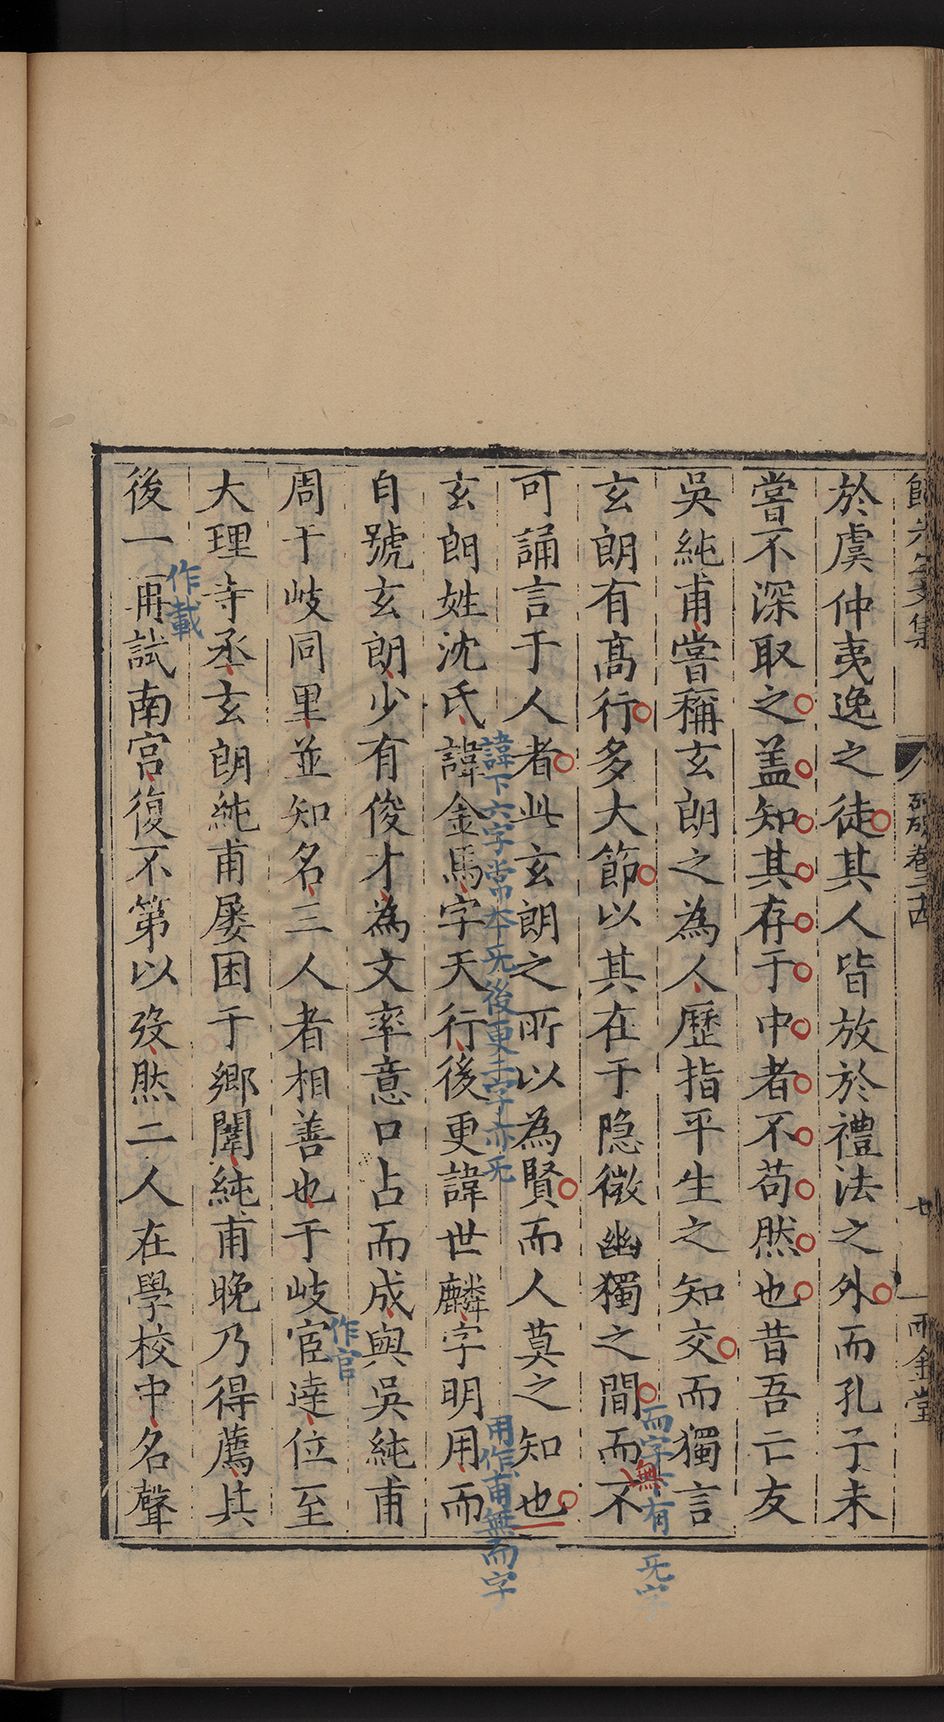 於虞仲夷逸之徒其人皆放於禮法之外而孔子未
嘗不深取之盖知其存于中者不苟然也昔吾亡友
吳純甫嘗稱玄朗之為人歷指平生之知交而獨言
玄朗有高行多大節以其在于隐微幽獨之間而不
而字無有 旡字
可誦言于人者此玄朗之所以為賢而人莫之知也
玄朗姓沈氏諱金馬字天行後更諱世麟字明用而
諱下六字常本旡後更二字亦旡
用作甫無而字
自號玄朗少有俊才為文率意口占而成與吳純甫
周于岐同里並知名三人者相善也于岐宦達位至
作官
大理寺丞玄朗純甫屡困于鄉闈純甫晚乃得薦其
後一再試南宫復不第以歿然二人在學校中名聲
作載
文集
卷二十四
廿一
雨金堂